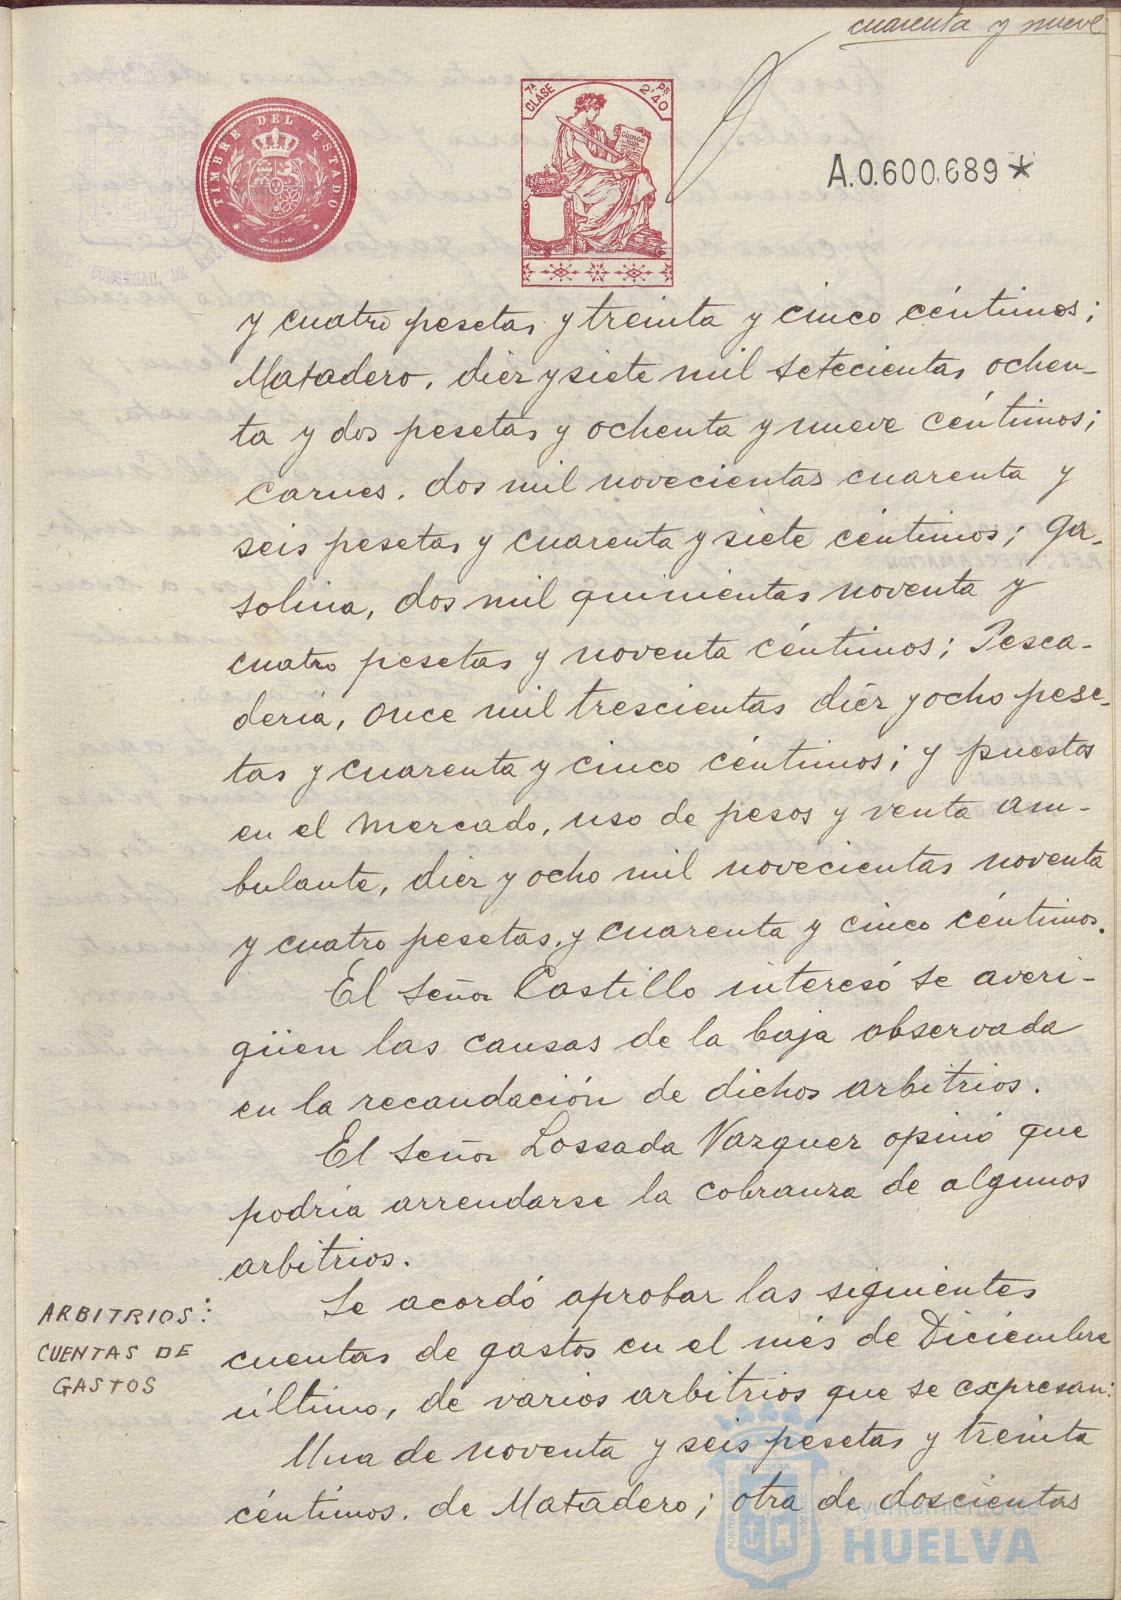 cuarenta y nueve
7ª CLASE
Ps 2'40
CÓDIGO
TIMBRE DEL ESTADO
A.0.600.689*
y cuatro pesetas y treinta y cinco céntimos;
Matadero, diéz y siete mil setecientas ochen-
ta y dos pesetas y ochenta y nueve céntimos;
Carnes, dos mil novecientas cuarenta y
seis pesetas y cuarenta y siete céntimos; ga-
solina, dos mil quinientas noventa y
cuatro pesetas y noventa céntimos; Pesca-
dería, once mil trescientas diéz y ocho pese-
tas y cuarenta y cinco céntimos; y puestos
en el mercado, uso de pesos y venta am-
bulante, diéz y ocho mil novecientas noventa
y cuatro pesetas, y cuarenta y cinco céntimos.
El señor Castillo interesó se averi-
güen las causas de la baja observada
en la recaudación de dichos arbitrios.
El señor Lossada Vazquez opinó que
podría arrendarse la cobranza de algunos
arbitrios.
ARBITRIOS:
CUENTAS DE
GASTOS
Se acordó aprobar las siguientes
cuentas de gastos en el més de Diciembre
último, de varios arbitrios que se expresan:
Una de noventa y seis pesetas y treinta
céntimos, de Matadero; otra de doscientas
Ayuntamiento de
HUELVA